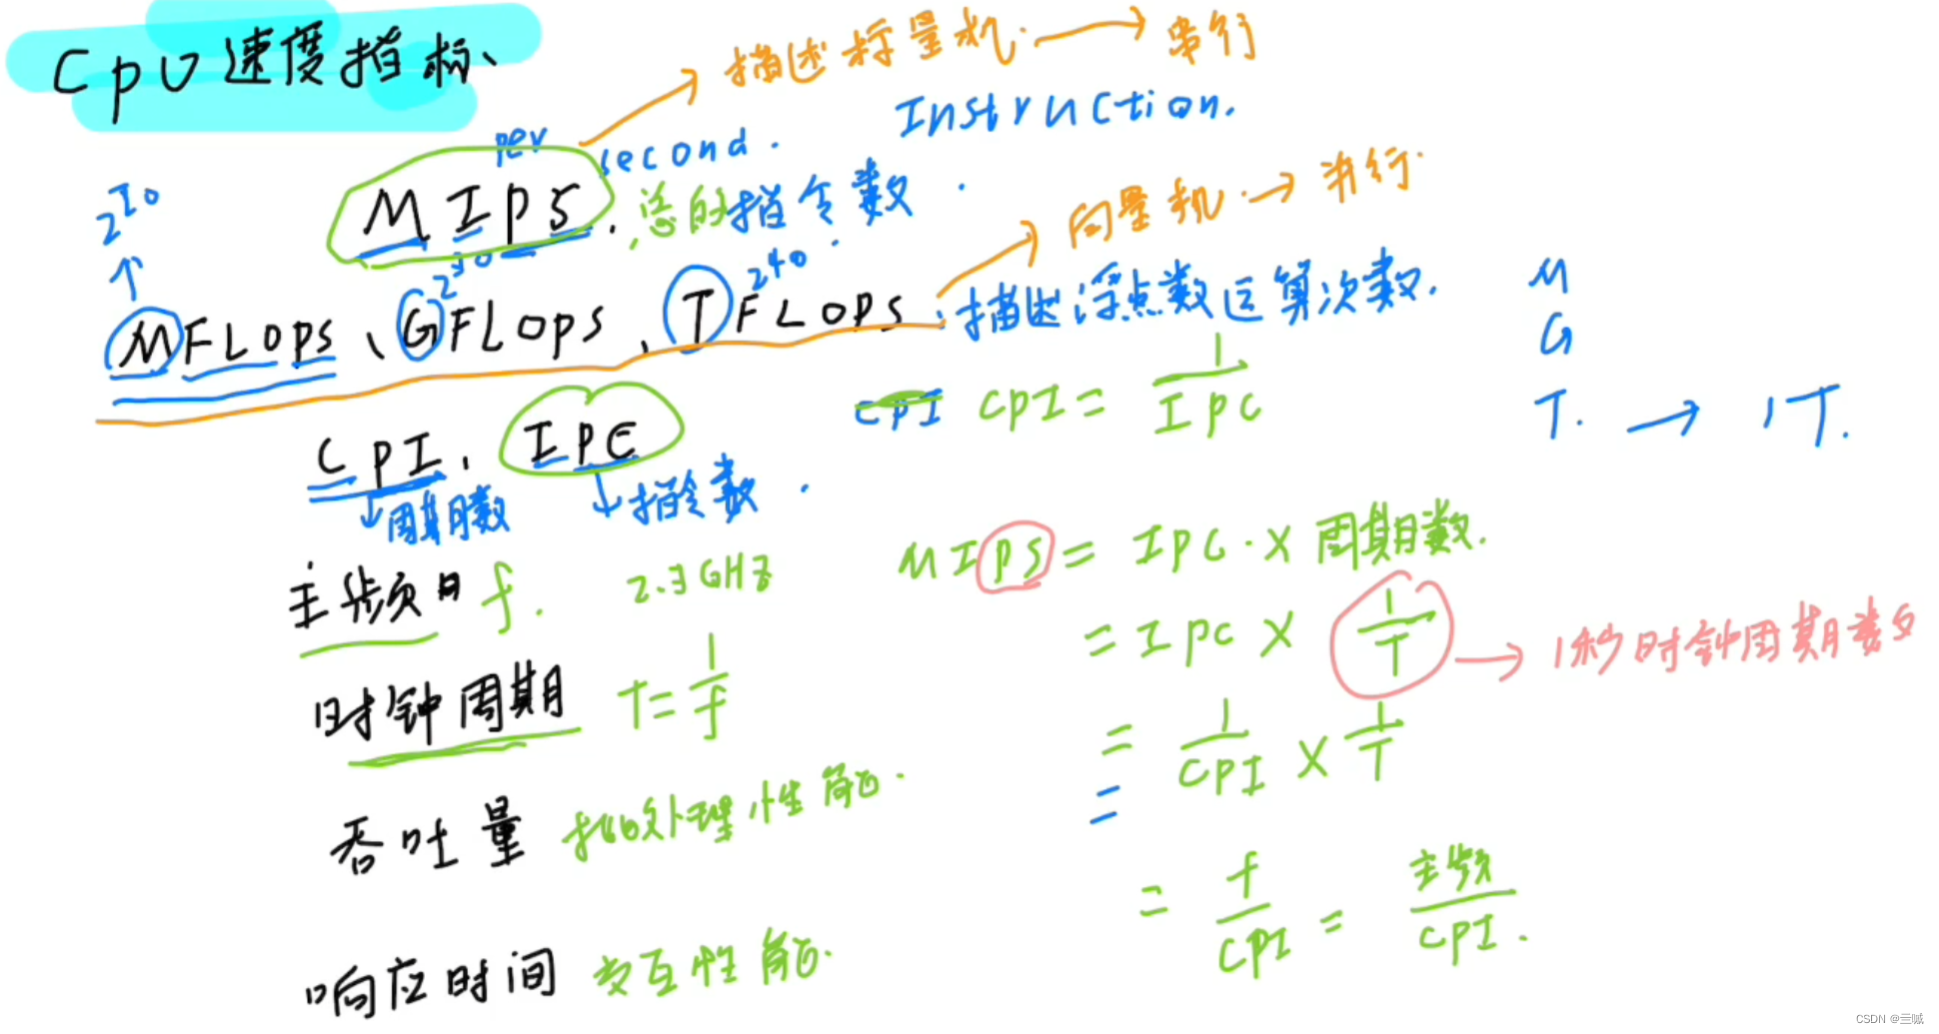 CPU速度指标、
描述标量机. → 串行
per second. Instruction.
MIPS. 总的指令数.
2^10
向量机. → 并行.
2^30
2^40
MFLOPS、GFLOPS、TFLOPS. 描述浮点数运算次数.
M
G
T. → 1T.
CPI CPI = 1/IPC
CPI、IPC
周期数
指令数.
主频 f. 2.3GHz
MIPS = IPC. × 周期数.
= IPC × 1/T → 1秒时钟周期数
时钟周期 T = 1/f
= 1/CPI × 1/T
=
吞吐量 批处理性能.
= f/CPI = 主频/CPI.
响应时间 交互性能.
CSDN @亖喊